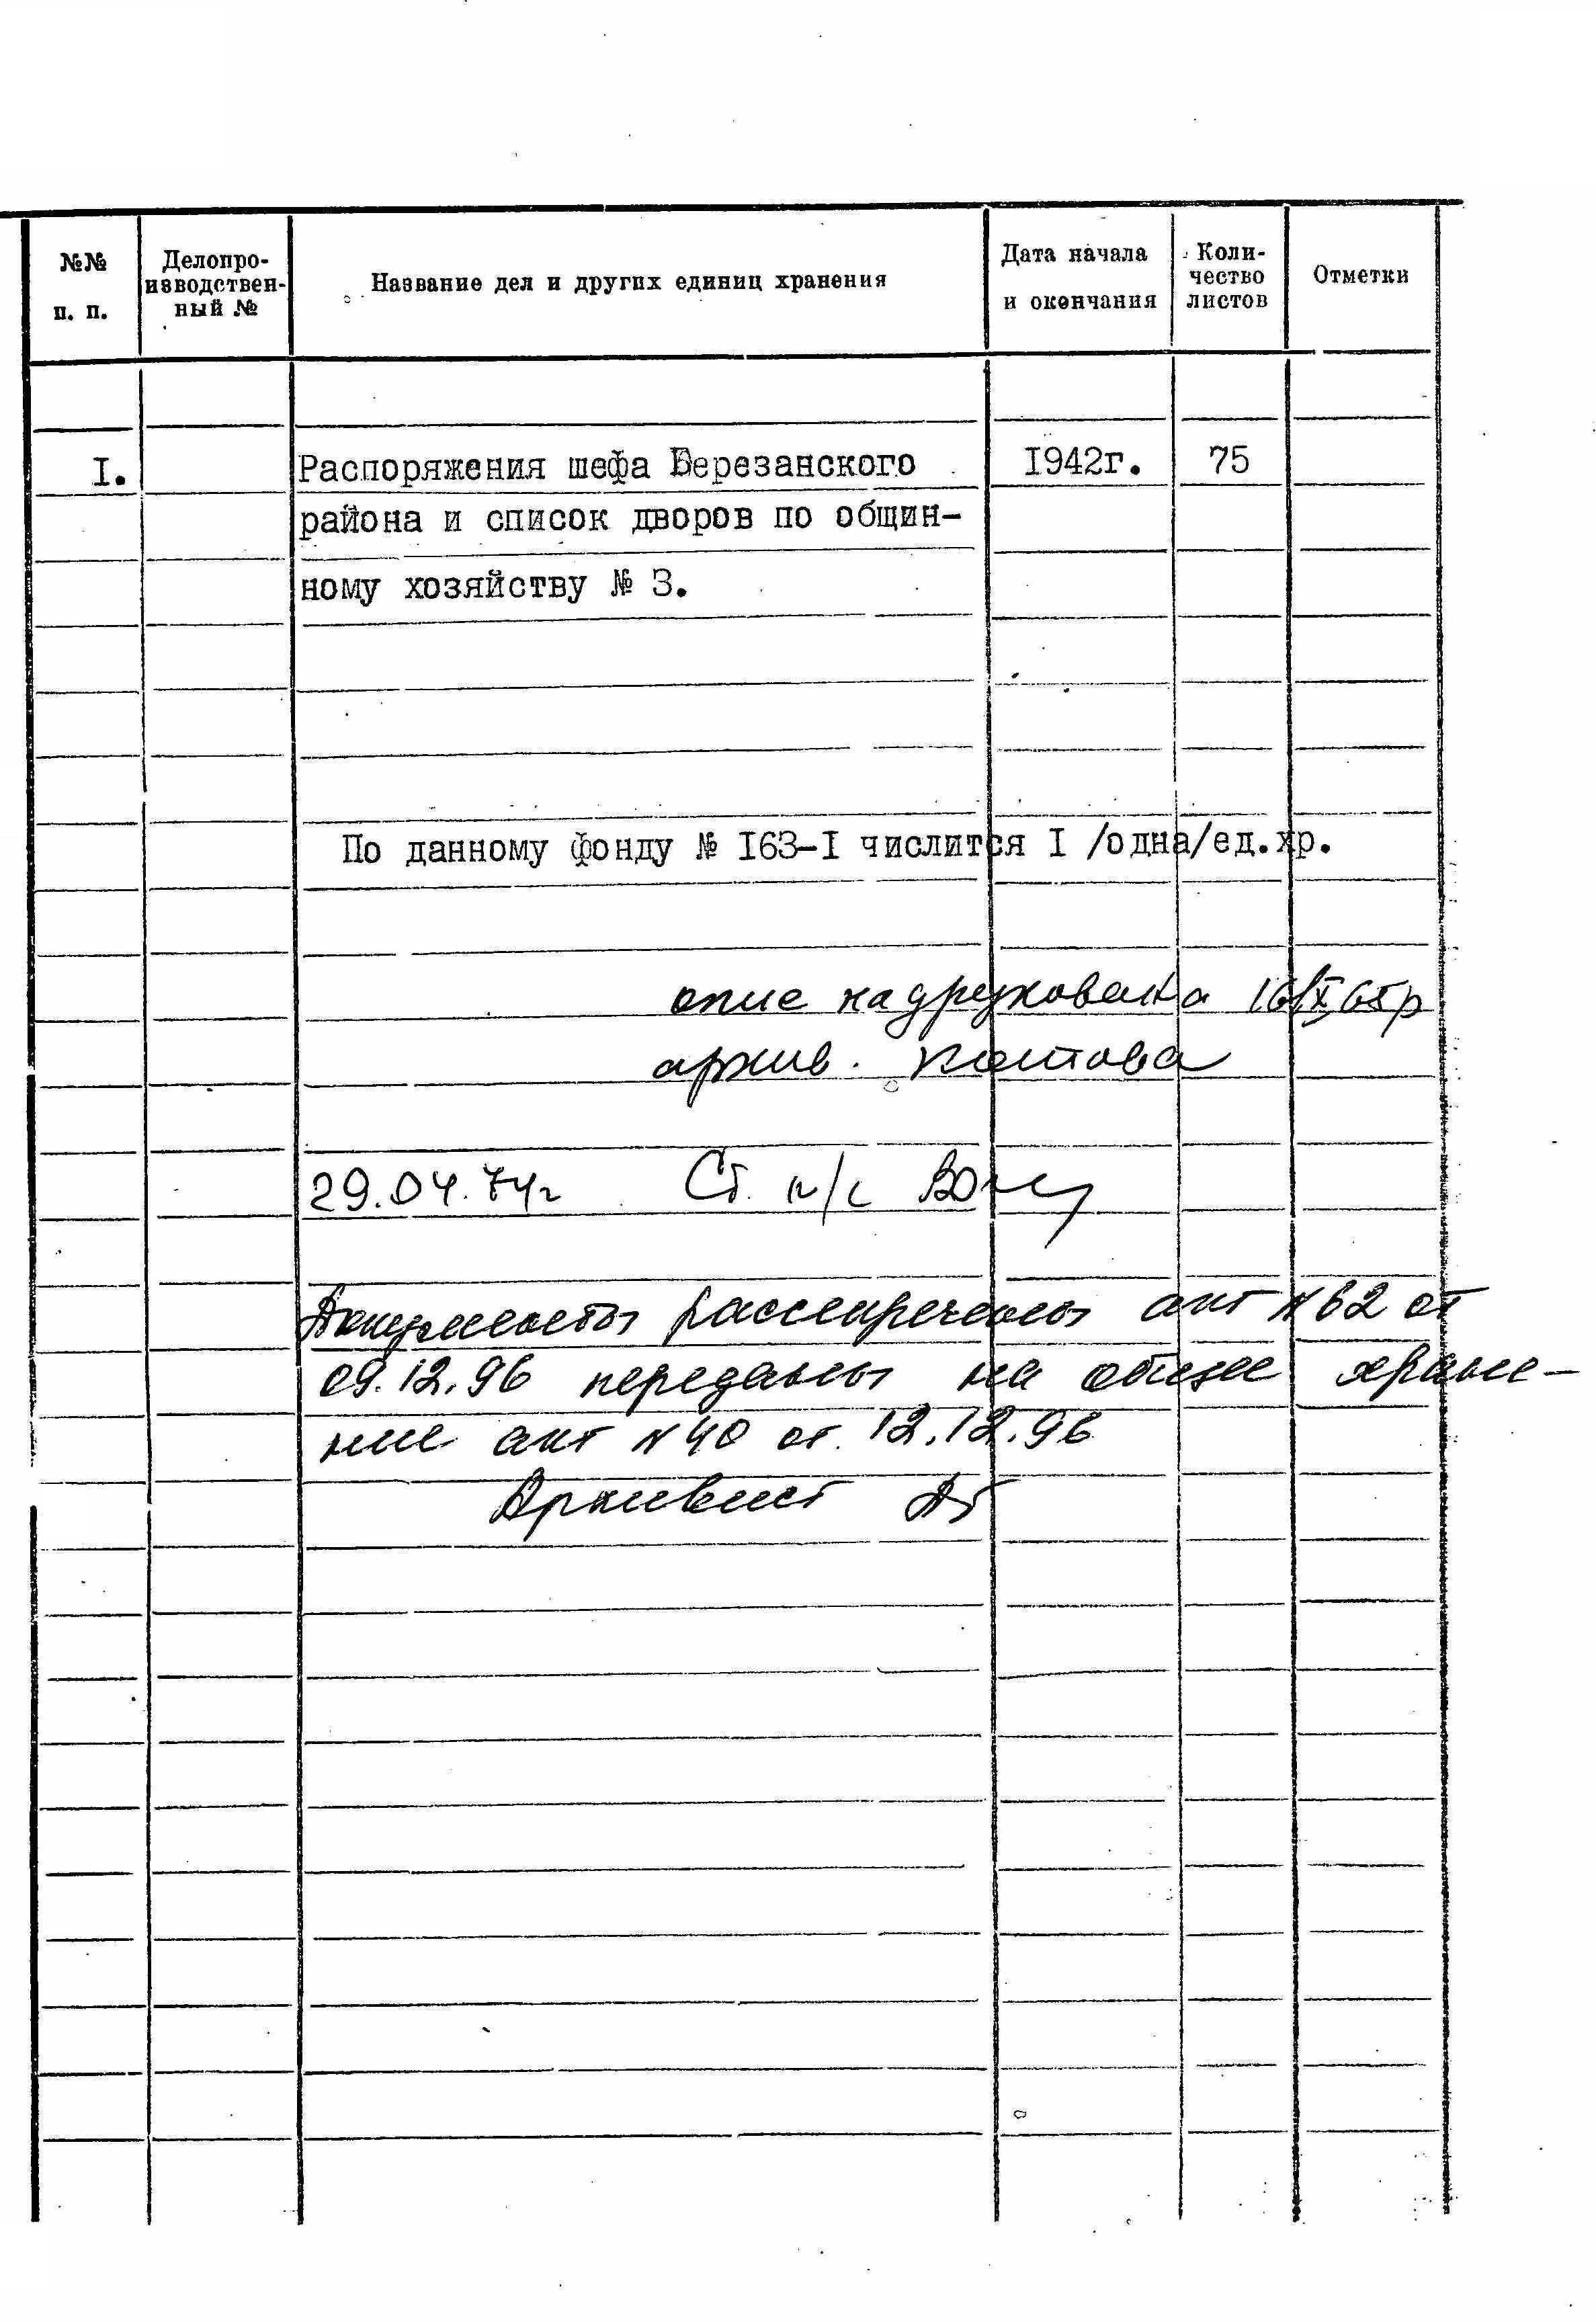 №№ п. п.
Делопро-
изводствен-
ный №
Название дел и других единиц хранения
Дата начала
и окончания
Коли-
чество
листов
Отметки
I. Распоряжения шефа Березанского 1942г. 75
района и список дворов по общин-
ному хозяйству № 3.
По данному фонду № I63-I числится I /одна/ед.хр.
опис надрукована 16/X 65р
архив.
29.04.74г Ст. н/с
Документы рассекречены акт № 62 от
09.12.96 переданы на общее хране-
ние акт № 40 от 12.12.96
Архивист